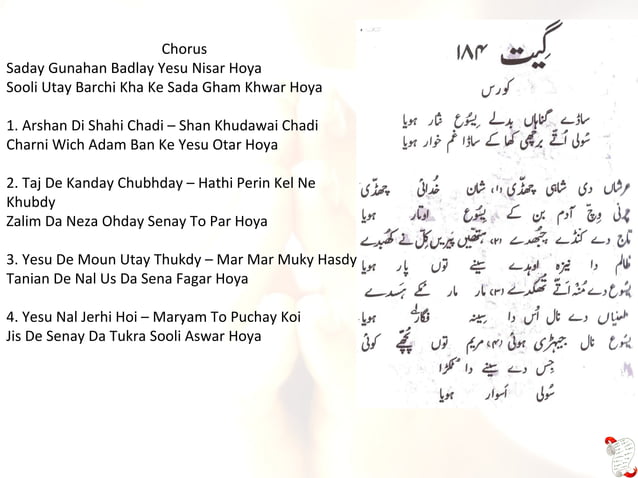 Chorus
Saday Gunahan Badlay Yesu Nisar Hoya
Sooli Utay Barchi Kha Ke Sada Gham Khwar Hoya
1. Arshan Di Shahi Chadi – Shan Khudawai Chadi
Charni Wich Adam Ban Ke Yesu Otar Hoya
2. Taj De Kanday Chubhday – Hathi Perin Kel Ne
Khubdy
Zalim Da Neza Ohday Senay To Par Hoya
3. Yesu De Moun Utay Thukdy – Mar Mar Muky Hasdy
Tanian De Nal Us Da Sena Fagar Hoya
4. Yesu Nal Jerhi Hoi – Maryam To Puchay Koi
Jis De Senay Da Tukra Sooli Aswar Hoya
گیت ۱۸۴
کورس
ساڈے گناہاں بدلے یسُوع نثار ہویا
سُولی اُتّے برچھی کھا کے ساڈا غم خوار ہویا
عرشاں دی شاہی چھڈّی (۱) شان خُدائی چھڈّی
چرنی وِچّ آدم بن کے یسُوع اوتار ہویا
تاج دے کنڈے چُبھدے (۲) ہتھیں پیریں کِلّ نے کھُبدے
ظالم دا نیزہ اوہدے سینے توں پار ہویا
یسُوع دے مُنہ اُتّے تھُکدے (۳) مار مار مُکّے ہسدے
طعنیاں دے نال اُس دا سینہ فگار ہویا
یسُوع نال جیہڑی ہوئی (۴) مریم توں پُچھّے کوئی
جِس دے سینے دا ٹکڑا
سُولی اسوار ہویا